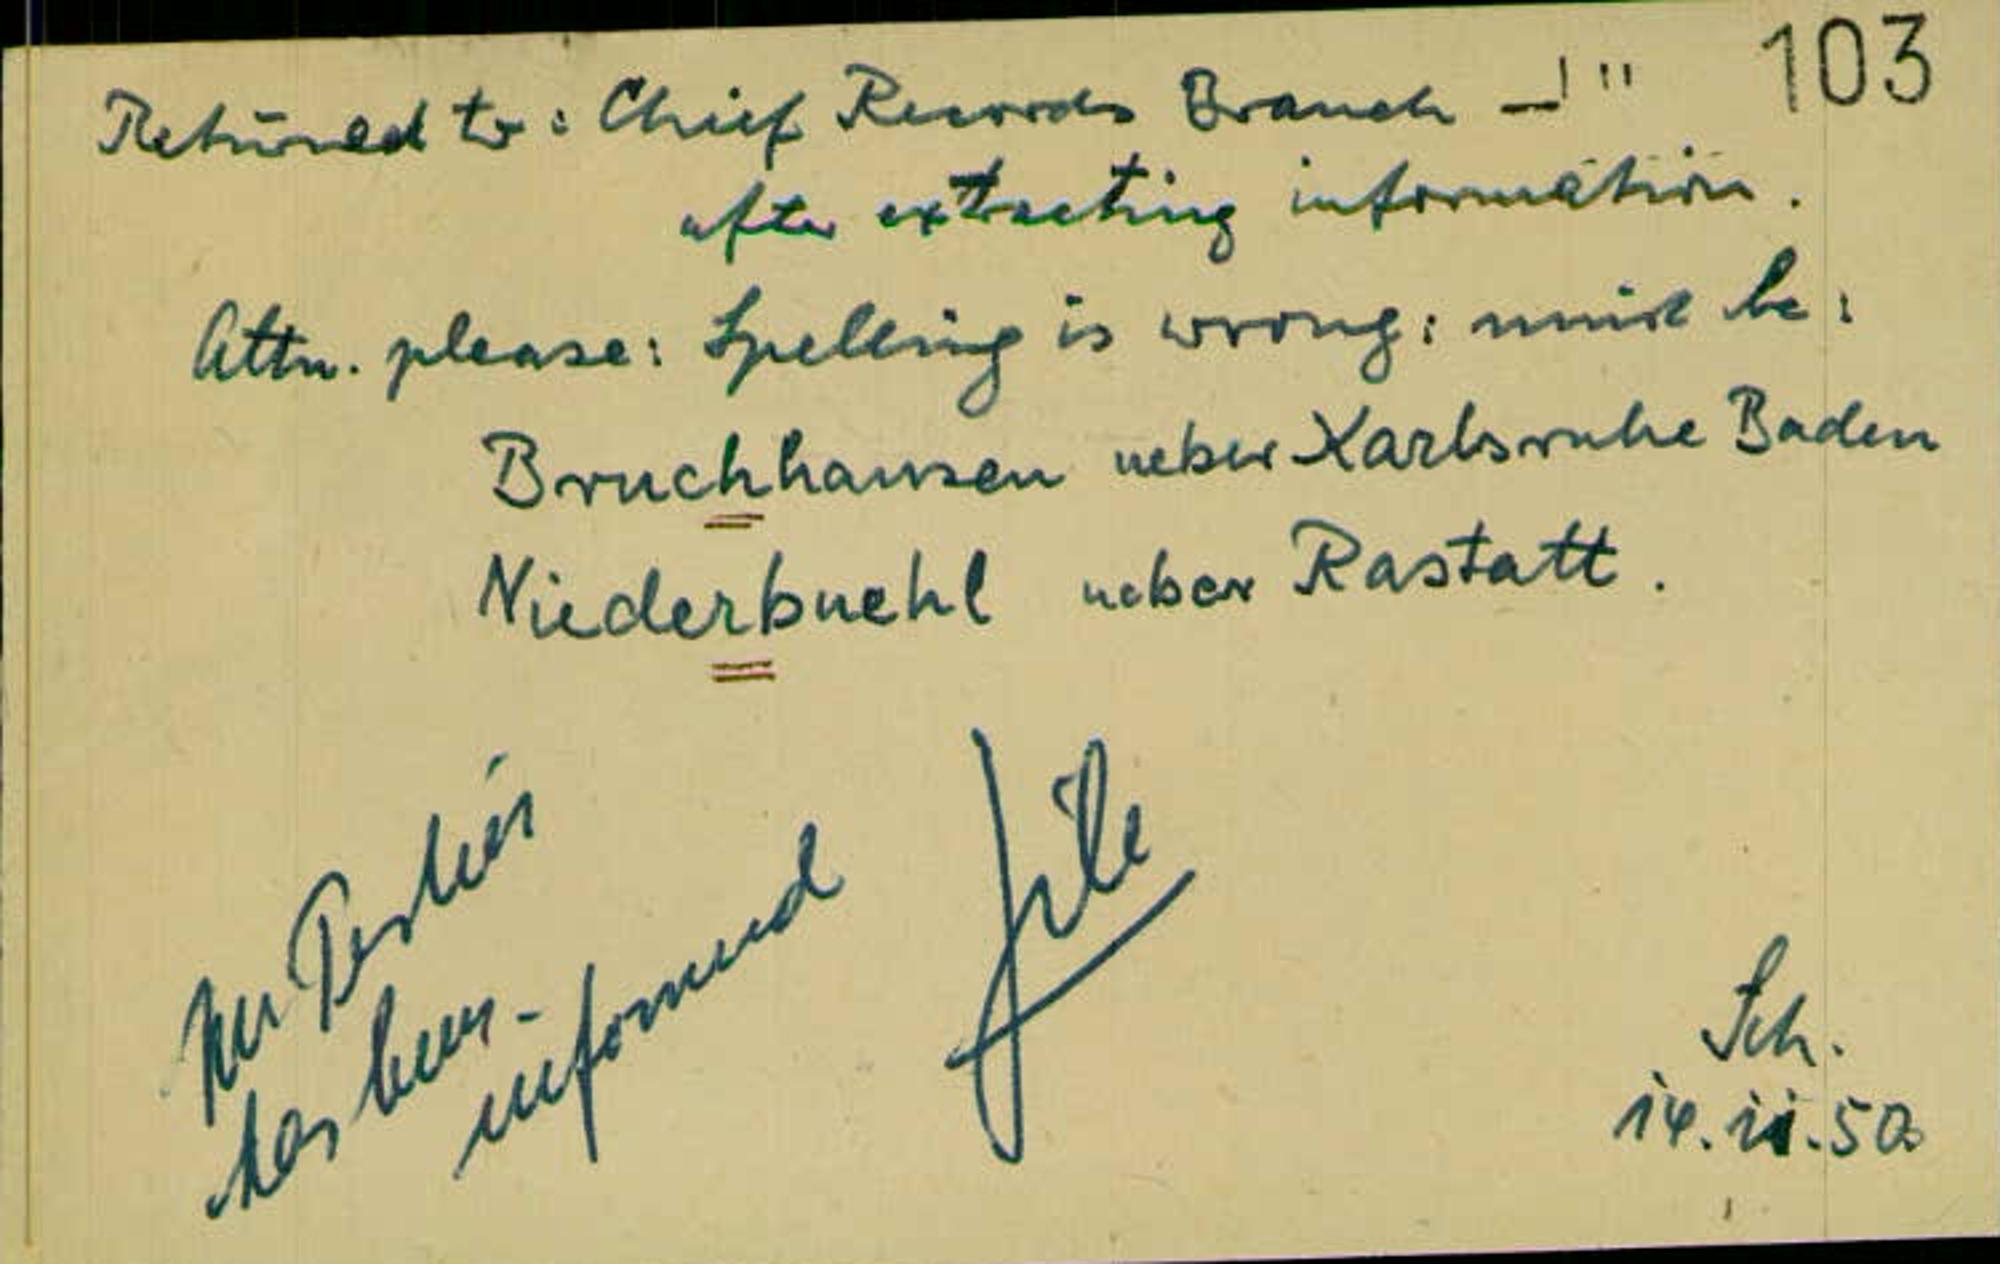 103
Returned to: Chief Records Branch
after extracting information.
Attn. please: Spelling is wrong; must be:
Bruchhausen ueber Karlsruhe Baden
Niederbuehl ueber Rastatt.
Mr
has been
informed
file
Sch.
50